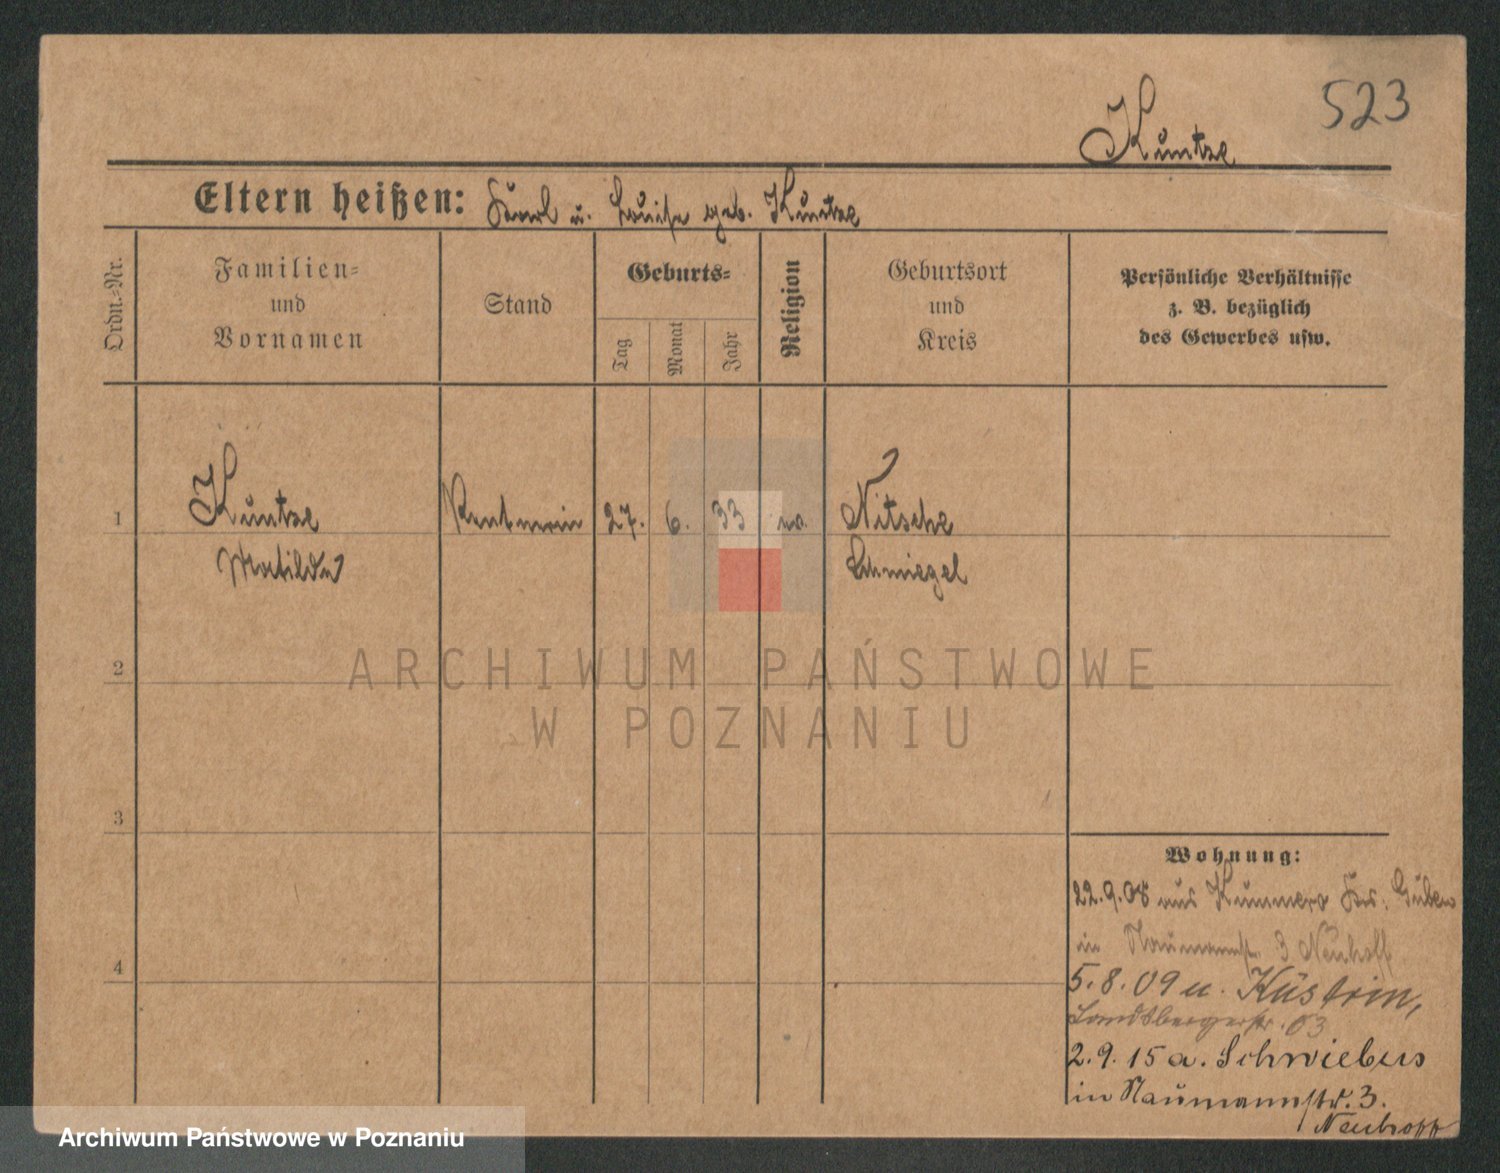 523
Kuntze
Eltern heißen: Karl u. Louise geb. Kuntze
Ordn.=Nr.
Familien=
und
Vornamen
Stand
Geburts=
Tag
Monat
Jahr
Religion
Geburtsort
und
Kreis
Persönliche Verhältnisse
z. B. bezüglich
des Gewerbes usw.
1
Kuntze Rentnerin 27. 6. 33 ev. Nitsche
Matilde Schmiegel
2
ARCHIWUM PAŃSTWOWE
W POZNANIU
3
Wohnung:
22.9.08 aus Kummero Krs. Guben
in Naumannstr. 3 Neuhoff
4
5.8.09 u. Küstrin,
Landsbergerstr. 63
2.9.15 a. Schwiebus
in Naumannstr. 3.
Neuhoff
Archiwum Państwowe w Poznaniu